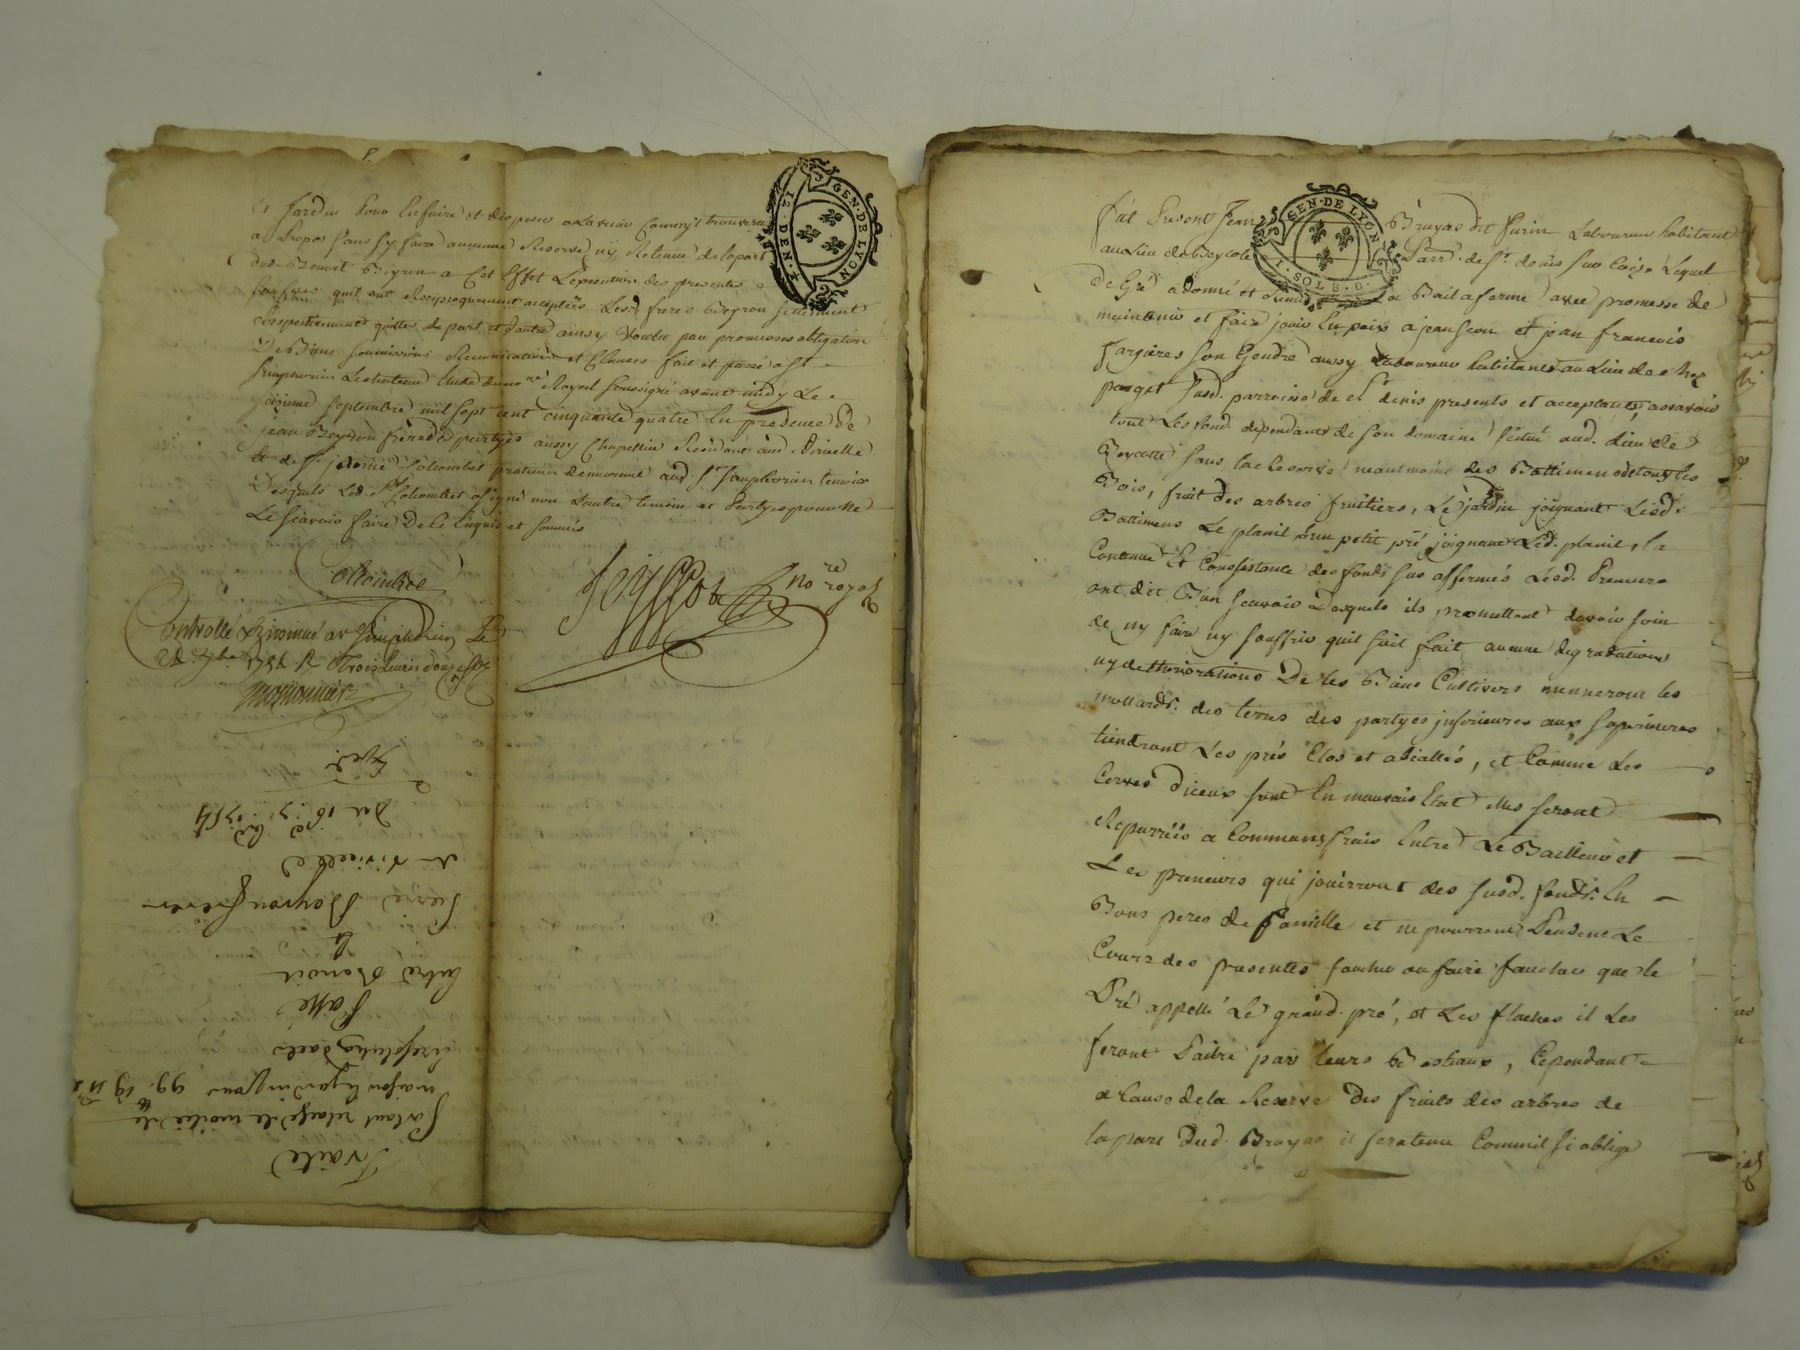 et jardin pour en faire et disposer a lavenir comme il trouvera
a propos sans sy faire aucunne Reserve ny Retenue de la part
dud. Benoit Beyron a Cet Effet L'execution des presentes
quil ont Reciproquement acceptées Lesd. freres Beyron
Respectivement quittes de part et dautre ainsy voulu par promesses obligation
De Biens soumissions Renonciations et Clauses fait et passé a St
Simphorien Lechateau Etude du no.re Royal soussigné avant midy Le
seizieme septembre mil sept cent cinquante quatre En presence de
jean Beyron frere des partyes aussy Chapellier Residant aud. Virielle
et de Sr. jerome praticien demeurant aud. St. Simphorien temoins
Desquels Led. Sr. a signé non L'autre temoin et Partyes pour ne
Le scavoir faire De ce Enquis et sommés
no.re royal
Controllé & insinué a St Simphorien Le
Trois livres douze sols
GEN. DE LYON
Traité
Portant relache de moitié de
maison & jardin
Passé
Entre Benoit
&
Pierre Beyron freres
de Virielle
Du 16. 7bre 1754
Exp.d
GEN. DE LYON
SOLS. D.
fut Present Jean Bruyas dit Purin Laboureur habitant
au Lieu de Beycotte Parr. de St. denis sur Coise Lequel
De Gré a donné et Remis a Bail a ferme avec promesse de
maintenir et faire jouir En paix a jean et jean francois
fargieres son Gendre aussy Laboureur habitants au Lieu de chez
ponget susd. parroisse de St denis presents et acceptants, assavoir
tout Les fond. dependants de son domaine scitué aud. Lieu de
Beycotte sans La Reserve neantmoins des Battimens de tous les
Bois, fruit des arbres fruitiers, Le jardin joignant Lesd.
Battimens Le planil & un petit pré joignant Led. planil, la
Contenue Et Consistance des fonds sus affermés Lesd. Preneurs
ont dit Bien scavoir Desquels ils promettent davoir soin
de ny faire ny souffrir quil soit fait aucune degradations
ny detheriorations De les Biens Cultiver menneront les
mollards. des terres des partyes inferieures aux superieures
tiendront Les prés Clos et abialtés, et Comme Les
Serves diceux sont En mauvais Etat elles seront
Reparrées a Communs frais Entre Le Bailleur et
Les preneurs qui jouirront des susd. fonds. En
Bons peres de famille et ne pourront Pendent Le
Cours des presentes faucher ou faire faucher que le
Pré appellé Le grand pré, et Les flaches il Les
feront Paitre par leurs Bestiaux, Cependant
a Cause de la Reserve des fruits des arbres de
la part Dud. Bruyas il sera tenu Comme il si oblige